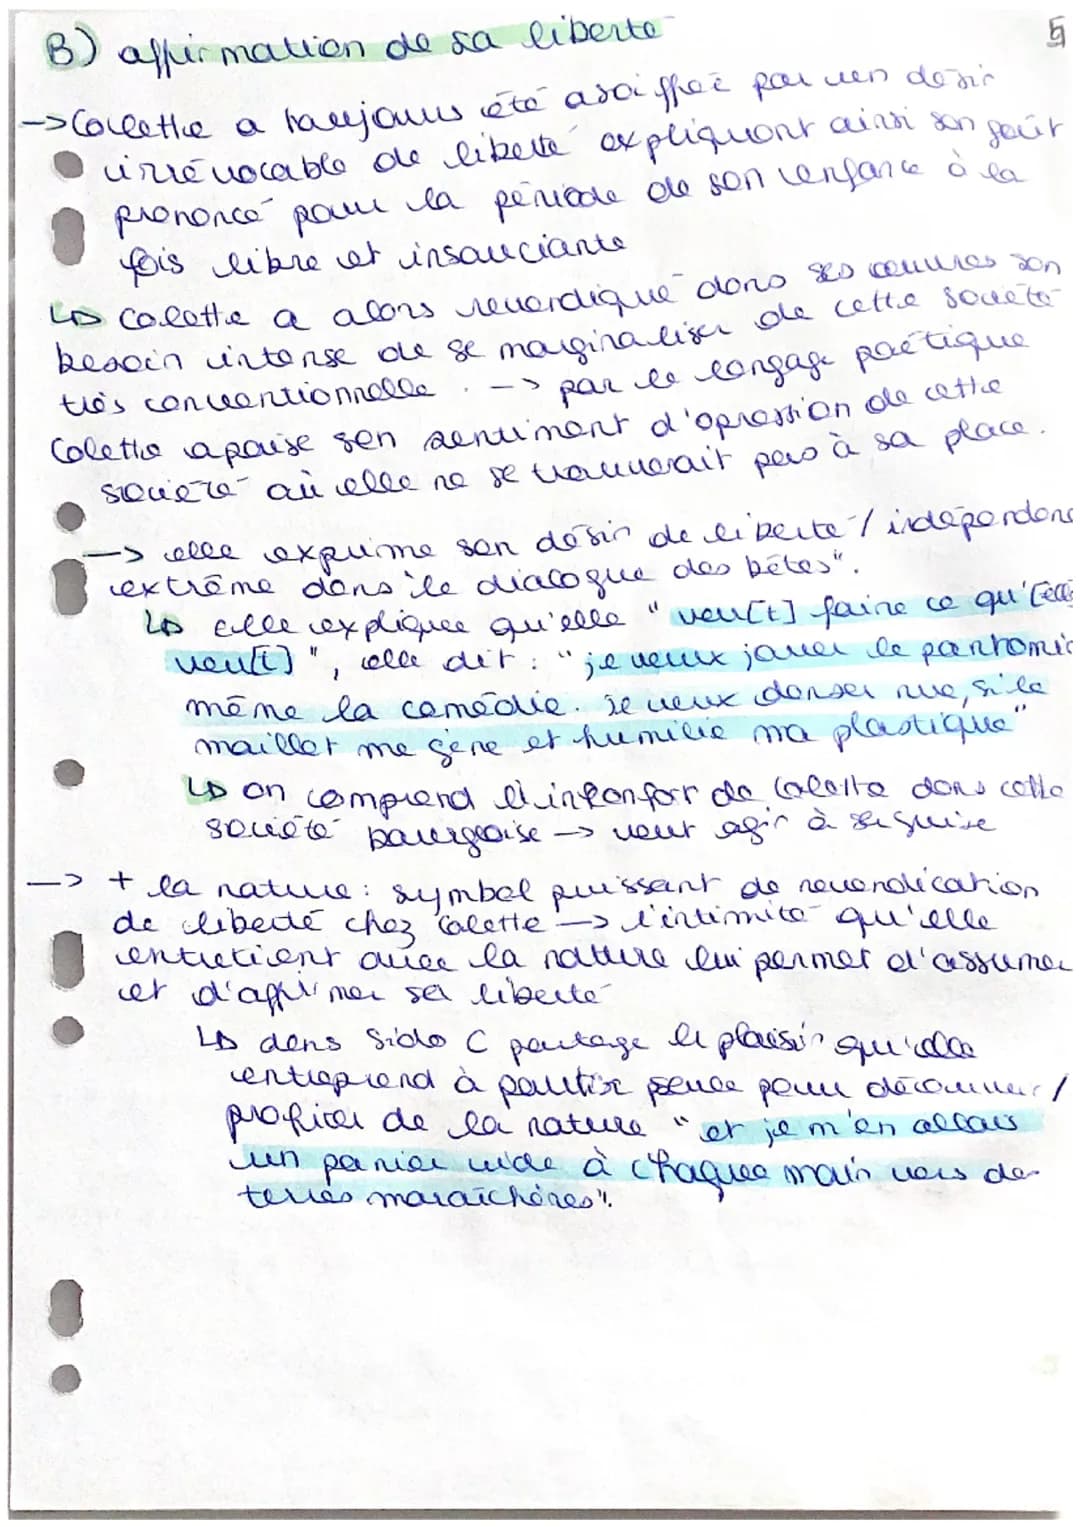 B) affirmation de sa liberté
5
-> Colette a toujours été assoiffée par un désir
irrévocable de liberté expliquant ainsi son goût
prononcé pour la période de son enfance à la
fois libre et insouciante
↳ Colette a alors revendiqué dans ses oeuvres son
besoin intense de se marginaliser de cette société
très conventionnelle. -> par le langage poétique
Colette apaise son sentiment d'opression de cette
société où elle ne se trouverait pas à sa place.
-> elle exprime son désir de liberté / indépendanc
extrême dans "le dialogue des bêtes".
↳ elle explique qu'elle "veu[t] faire ce qu'[elle]
veu[t]", elle dit : "je veux jouer la pantomi
même la comédie. je veux danser nue, si le
maillot me gêne et humilie ma plastique"
↳ on comprend l'inconfort de Colette dans cette
société bourgeoise -> veut agir à sa guise
-> + la nature : symbol puissant de revendication
de liberté chez Colette -> l'intimité qu'elle
entretient avec la nature lui permet d'assumer
et d'affirmer sa liberté
↳ dans Sido C partage le plaisir qu'elle
entreprend à partir seule pour découvrir /
profiter de la nature "et je m'en allais
un panier vide à chaque main vers de
terres maraîchères".